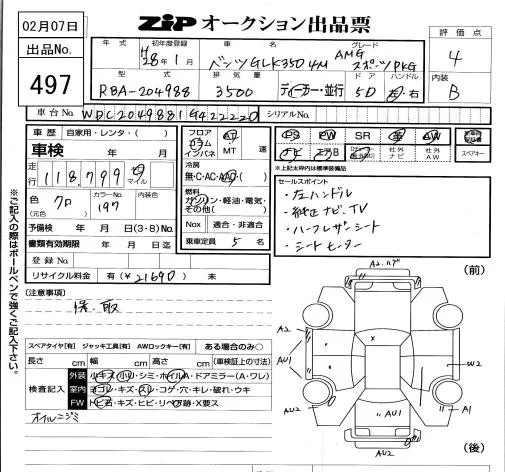 02月07日
出品No.
497
ZIP オークション出品票
評価点
4
内装
B
年式 初年度登録 車名 グレード
H28年1月 ベンツGLK350 4M AMGスポーツPKG
型式 排気量 ドア ハンドル
RBA-204988 3500 ディーラー・並行 5D 左・右
車台No. WDC2049881G422220 シリアルNo.
車歴 自家用・レンタ・( )
車検 年 月
走行 118,799 キロ マイル
色 クロ (元色) カラーNo. 197 内装色
予備検 年 月 日(3・8)No.
書類有効期限 年 月 日迄
登録No.
リサイクル料金 有(¥21690) 未
フロア コラム インパネ AT MT 速
冷房 無・C・AC・AAC・( )
燃料 ガソリン・軽油・電気・その他( )
Nox 適合・非適合
乗車定員 5 名
PS PW SR 革 AW
ナビ エアB 社外ナビ 社外AW スペアキー
※上記太枠内は標準装備品
セールスポイント
・左ハンドル
・純正ナビ、TV
・ハーフレザーシート
・シートヒーター
[注意事項]
保、取
スペアタイヤ[有] ジャッキ工具[有] AWロックキー[有] ある場合のみ○
長さ cm 幅 cm 高さ cm (車検証上の寸法)
検査記入
外装 小キズ・小凹・シミ・ホイルA・ドアミラー(A・ワレ)
室内 ヨゴレ・キズ・スレ・コゲ・穴・キレ・破れ・ウキ
FW トビ石・キズ・ヒビ・リペア跡・X要ス
オイルニジミ
(前)
A2.ハゲ
A2
AU1
AU2
X
W2
A1
AU1
AU2
(後)
※ご記入の際はボールペンで強くご記入下さい。